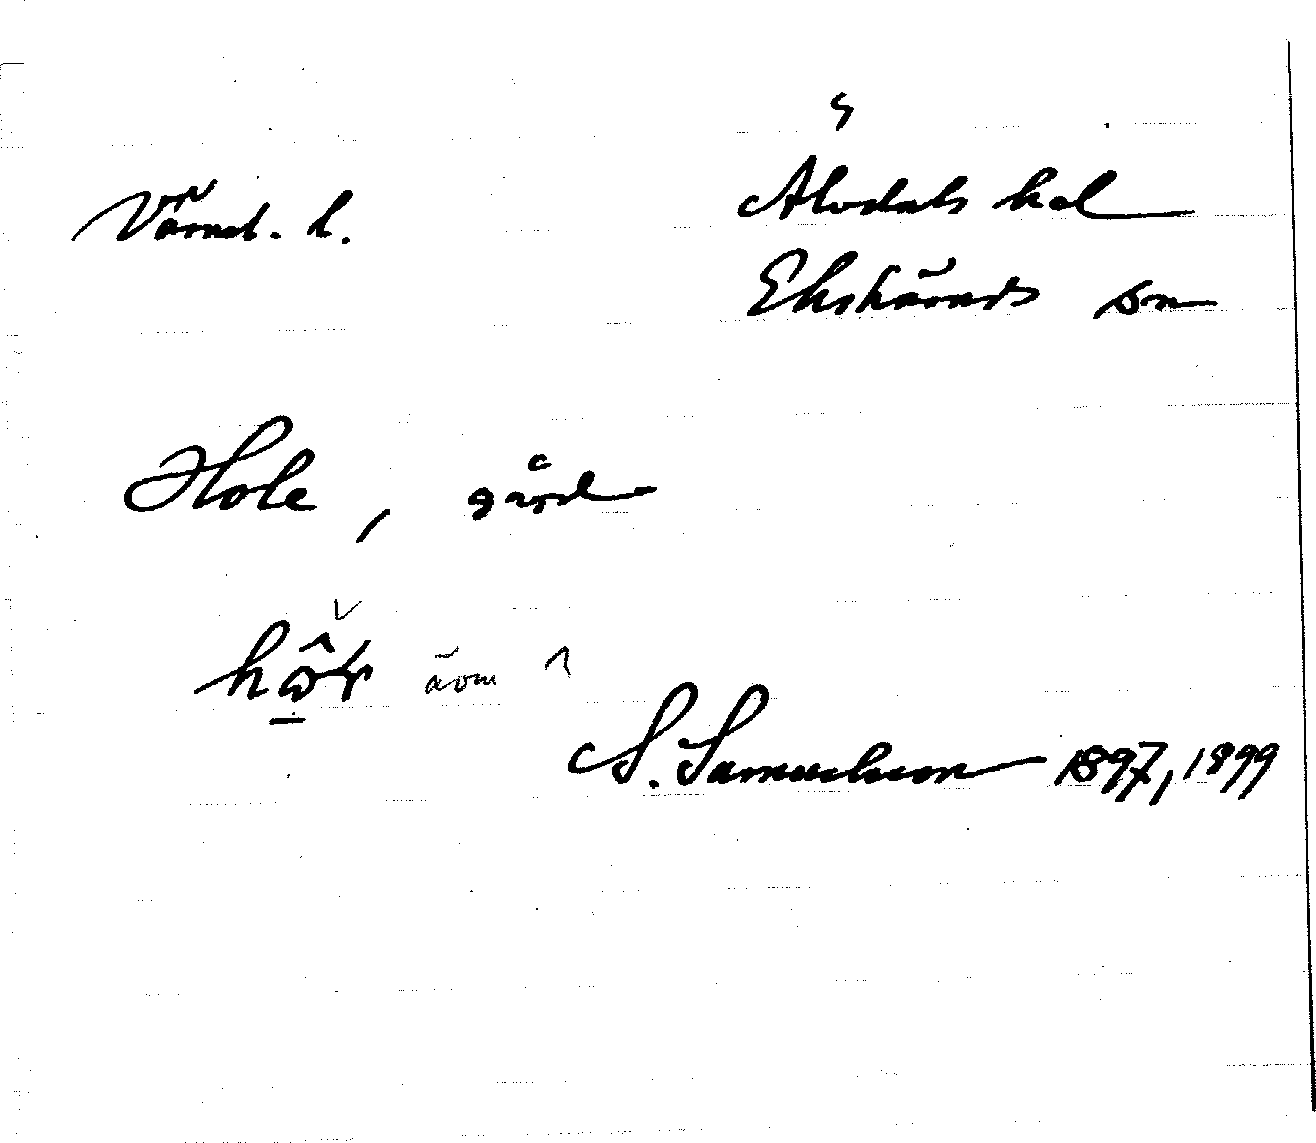 Värml. l.
Älvdals hd
Ekshärads sn
Hole, gård
även ^
S. Samuelsson 1897, 1899